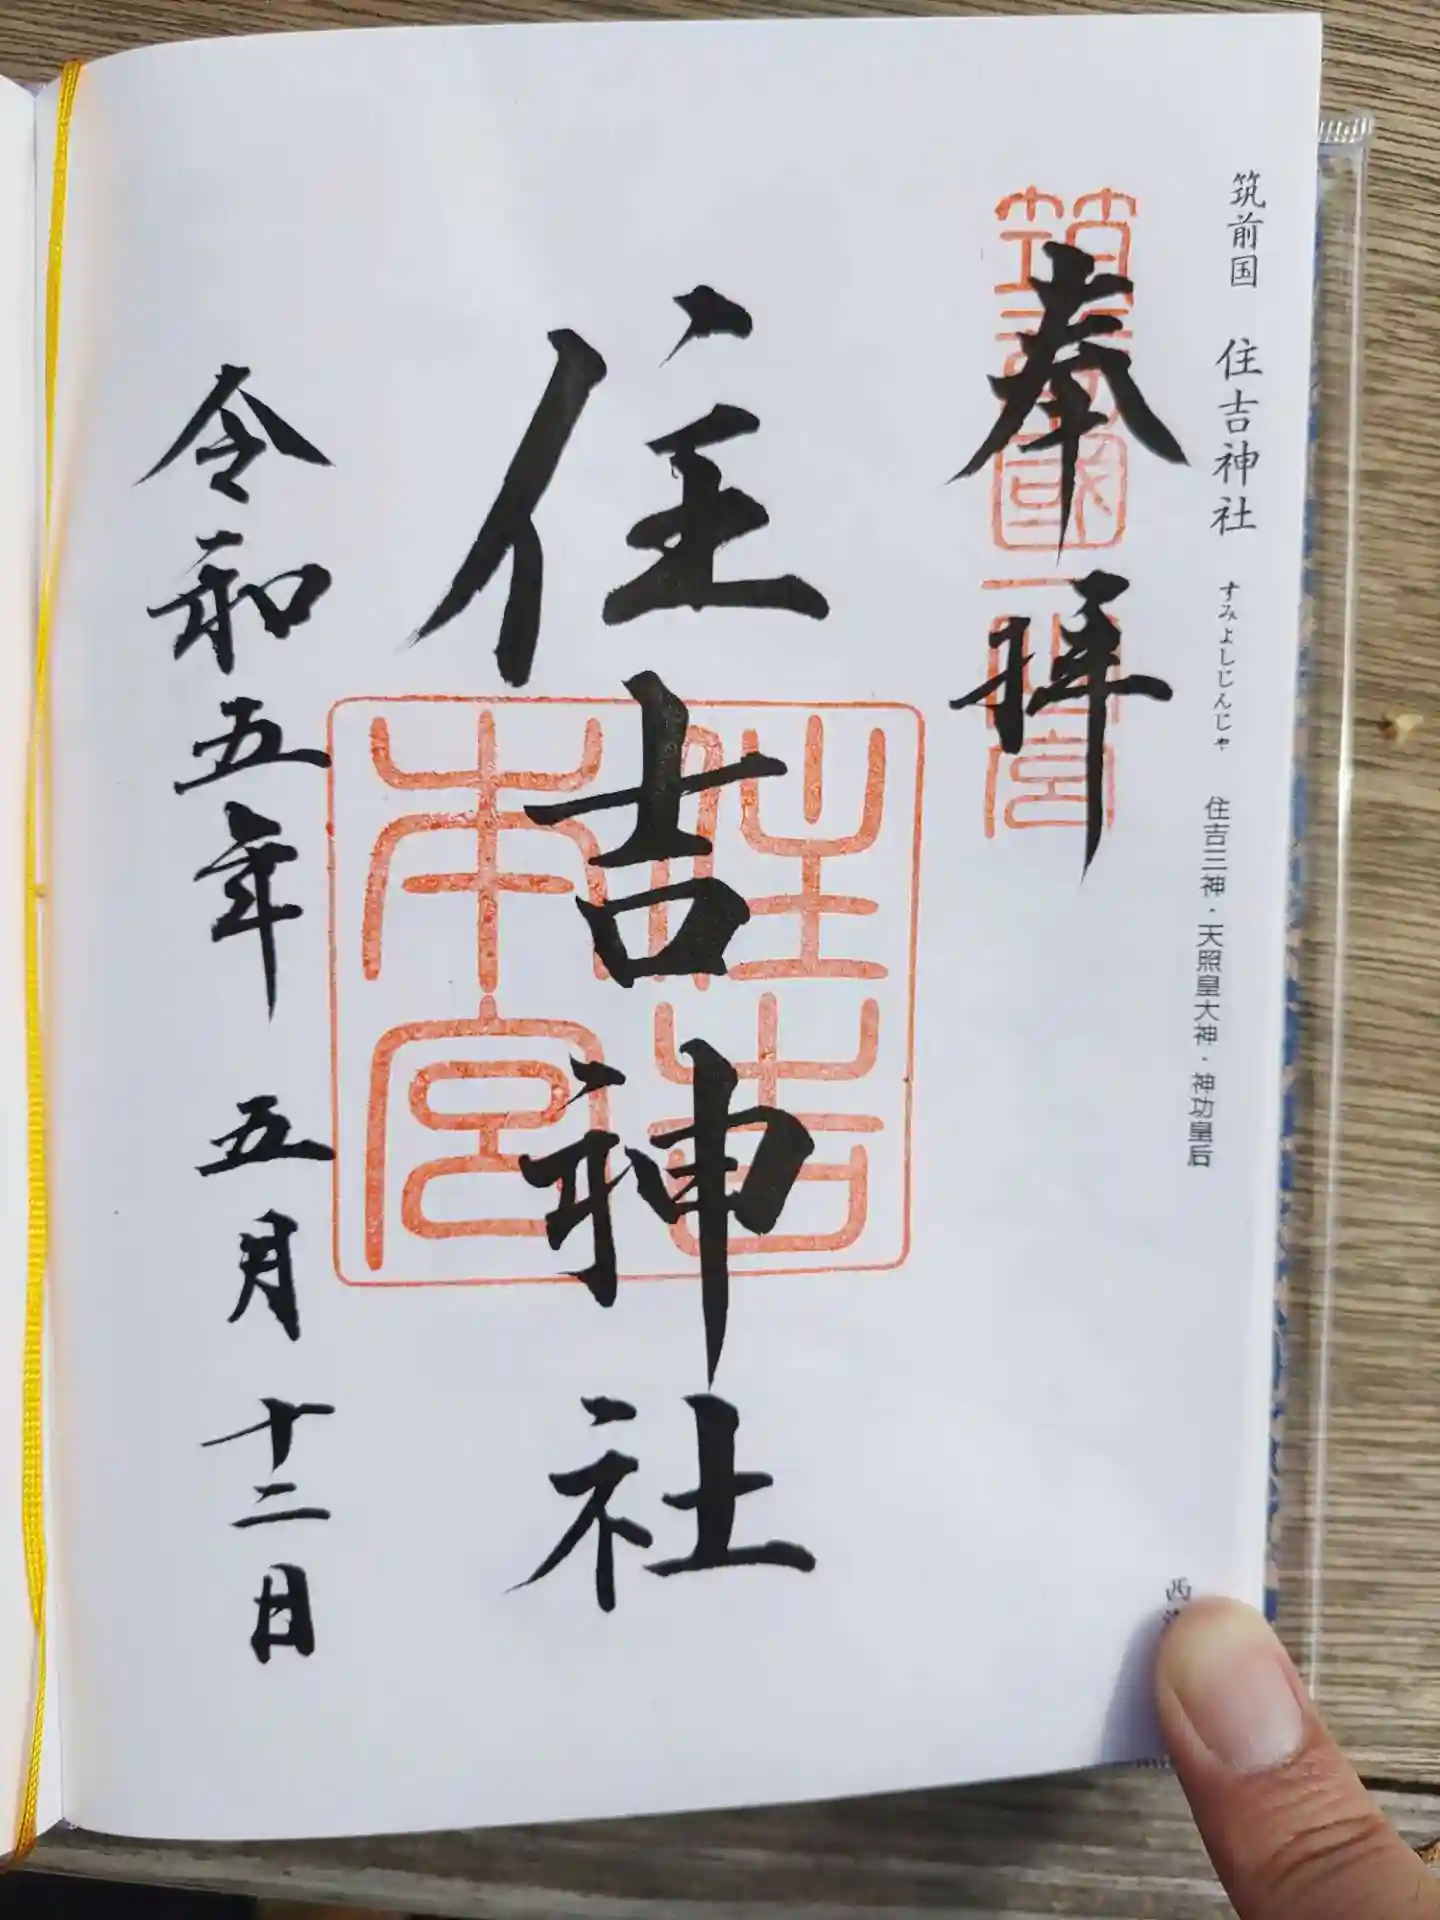 筑前国 住吉神社 すみよしじんじゃ 住吉三神・天照皇大神・神功皇后
西
奉拝
筑前國一宮
住吉神社
住吉本宮
令和五年 五月十二日